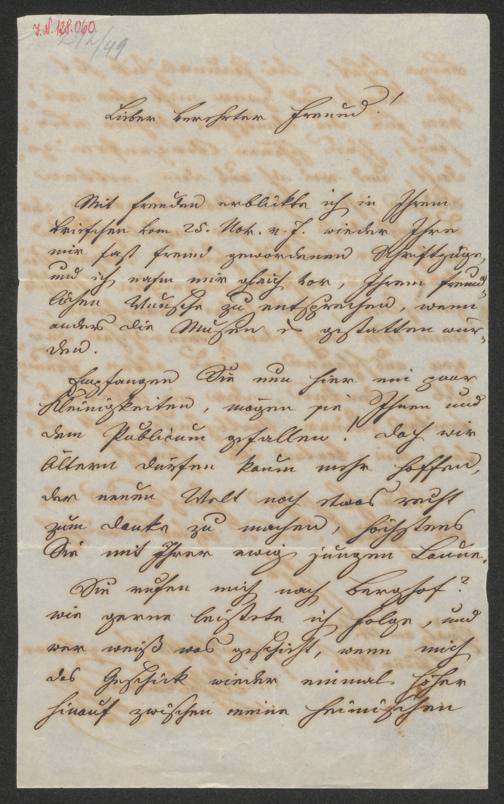 J.N. 128.060
2/2/49
Lieber verehrter Freund!
Mit Freuden erblickte ich in Ihrem
Briefchen vom 28. Nov. v. J. wieder Ihre
mir fast fremd gewordenen Schriftzüge,
und ich nahm mir gleich vor, Ihrem freund-
lichen Wunsche zu entsprechen, wenn
anders die Musen es gestatten wür-
den.
Empfangen Sie nun hier ein paar
Kleinigkeiten, mögen sie Ihnen und
dem Publicum gefallen! Doch wir
Ältern dürfen kaum mehr hoffen,
der neuen Welt noch etwas recht
zum Danke zu machen, höchstens
Sie mit Ihrer ewig jungen Laune.
Sie rufen mich nach Berghof?
wie gerne leistete ich Folge, und
wer weiß was geschieht, wenn mich
das Geschick wieder einmal höher
hinauf zwischen meine heimischen